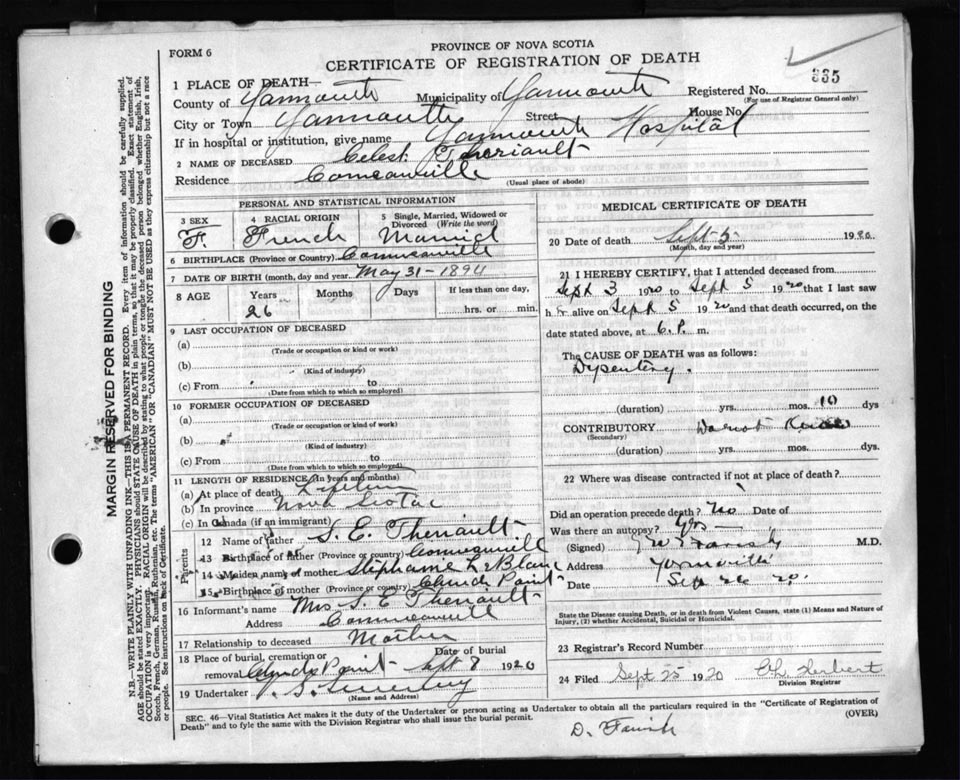 FORM 6
PROVINCE OF NOVA SCOTIA
CERTIFICATE OF REGISTRATION OF DEATH
335
1 PLACE OF DEATH—
County of Yarmouth Municipality of Yarmouth Registered No.
(For use of Registrar General only)
City or Town Yarmouth Street House No.
If in hospital or institution, give name Yarmouth Hospital
2 NAME OF DECEASED Celest Theriault
Residence Comeauville
(Usual place of abode)
PERSONAL AND STATISTICAL INFORMATION
3 SEX
F.
4 RACIAL ORIGIN
French
5 Single, Married, Widowed or Divorced (Write the word)
Married
6 BIRTHPLACE (Province or Country) Comeauville
7 DATE OF BIRTH (month, day and year) May 31-1894
8 AGE Years Months Days If less than one day,
26 hrs. or min.
9 LAST OCCUPATION OF DECEASED
(a)
(Trade or occupation or kind or work)
(b)
(Kind of industry)
(c) From to
(Dates from which to which so employed)
10 FORMER OCCUPATION OF DECEASED
(a)
(Trade or occupation or kind of work)
(b)
(Kind of industry)
(c) From to
(Dates from which to which so employed)
11 LENGTH OF RESIDENCE (in years and months)
(a) At place of death Lifetime
(b) In province Nova Scotia
(c) In Canada (if an immigrant)
Parents
12 Name of father S. E. Theriault
13 Birthplace of father (Province or country) Comeauville
14 Maiden name of mother Stephanie LeBlanc
15 Birthplace of mother (Province or country) Church Point
16 Informant's name Mrs. S. E. Theriault
Address Comeauville
17 Relationship to deceased Mother
18 Place of burial, cremation or removal Church Point Date of burial Sept 8 1920
19 Undertaker
(Name and Address)
MEDICAL CERTIFICATE OF DEATH
20 Date of death Sept-5- 1920
(Month, day and year)
21 I HEREBY CERTIFY, that I attended deceased from
Sept 3 1920 to Sept 5 1920 that I last saw
h r alive on Sept 5 1920 and that death occurred, on the
date stated above, at 6. P. m.
The CAUSE OF DEATH was as follows:
Dysentery.
(duration) yrs. mos. 10 dys
CONTRIBUTORY
(Secondary)
(duration) yrs. mos. dys.
22 Where was disease contracted if not at place of death?
Did an operation precede death? No Date of
Was there an autopsy?
(Signed) Farish M.D.
Address Yarmouth
Date Sep 20.
State the Disease causing Death, or in death from Violent Causes, state (1) Means and Nature of Injury, (2) whether Accidental, Suicidal or Homicidal.
23 Registrar's Record Number
24 Filed Sept 25 1920 Herbert
Division Registrar
SEC. 46—Vital Statistics Act makes it the duty of the Undertaker or person acting as Undertaker to obtain all the particulars required in the "Certificate of Registration of
Death" and to fyle the same with the Division Registrar who shall issue the burial permit. (OVER)
D. Farish
MARGIN RESERVED FOR BINDING
N.B.—WRITE PLAINLY WITH UNFADING INK—THIS IS A PERMANENT RECORD. Every item of information should be carefully supplied.
AGE should be stated EXACTLY. PHYSICIANS should STATE CAUSE OF DEATH in plain terms, so that it may be properly classified. Exact statement of
OCCUPATION is very important. RACIAL ORIGIN will be described by stating to what people or tongue the deceased person belonged whether English, Irish,
Scotch, French, German, Russian, Ruthenian, etc. The terms "AMERICAN" OR "CANADIAN" MUST NOT BE USED as they express citizenship but not a race
or people. See instructions on back of Certificate.